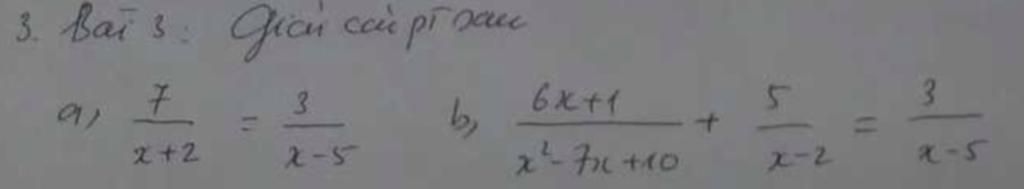 3. Bài 3: Giải các pt sau
a, 7/(x+2) = 3/(x-5) b, (6x+1)/(x²-7x+10) + 5/(x-2) = 3/(x-5)